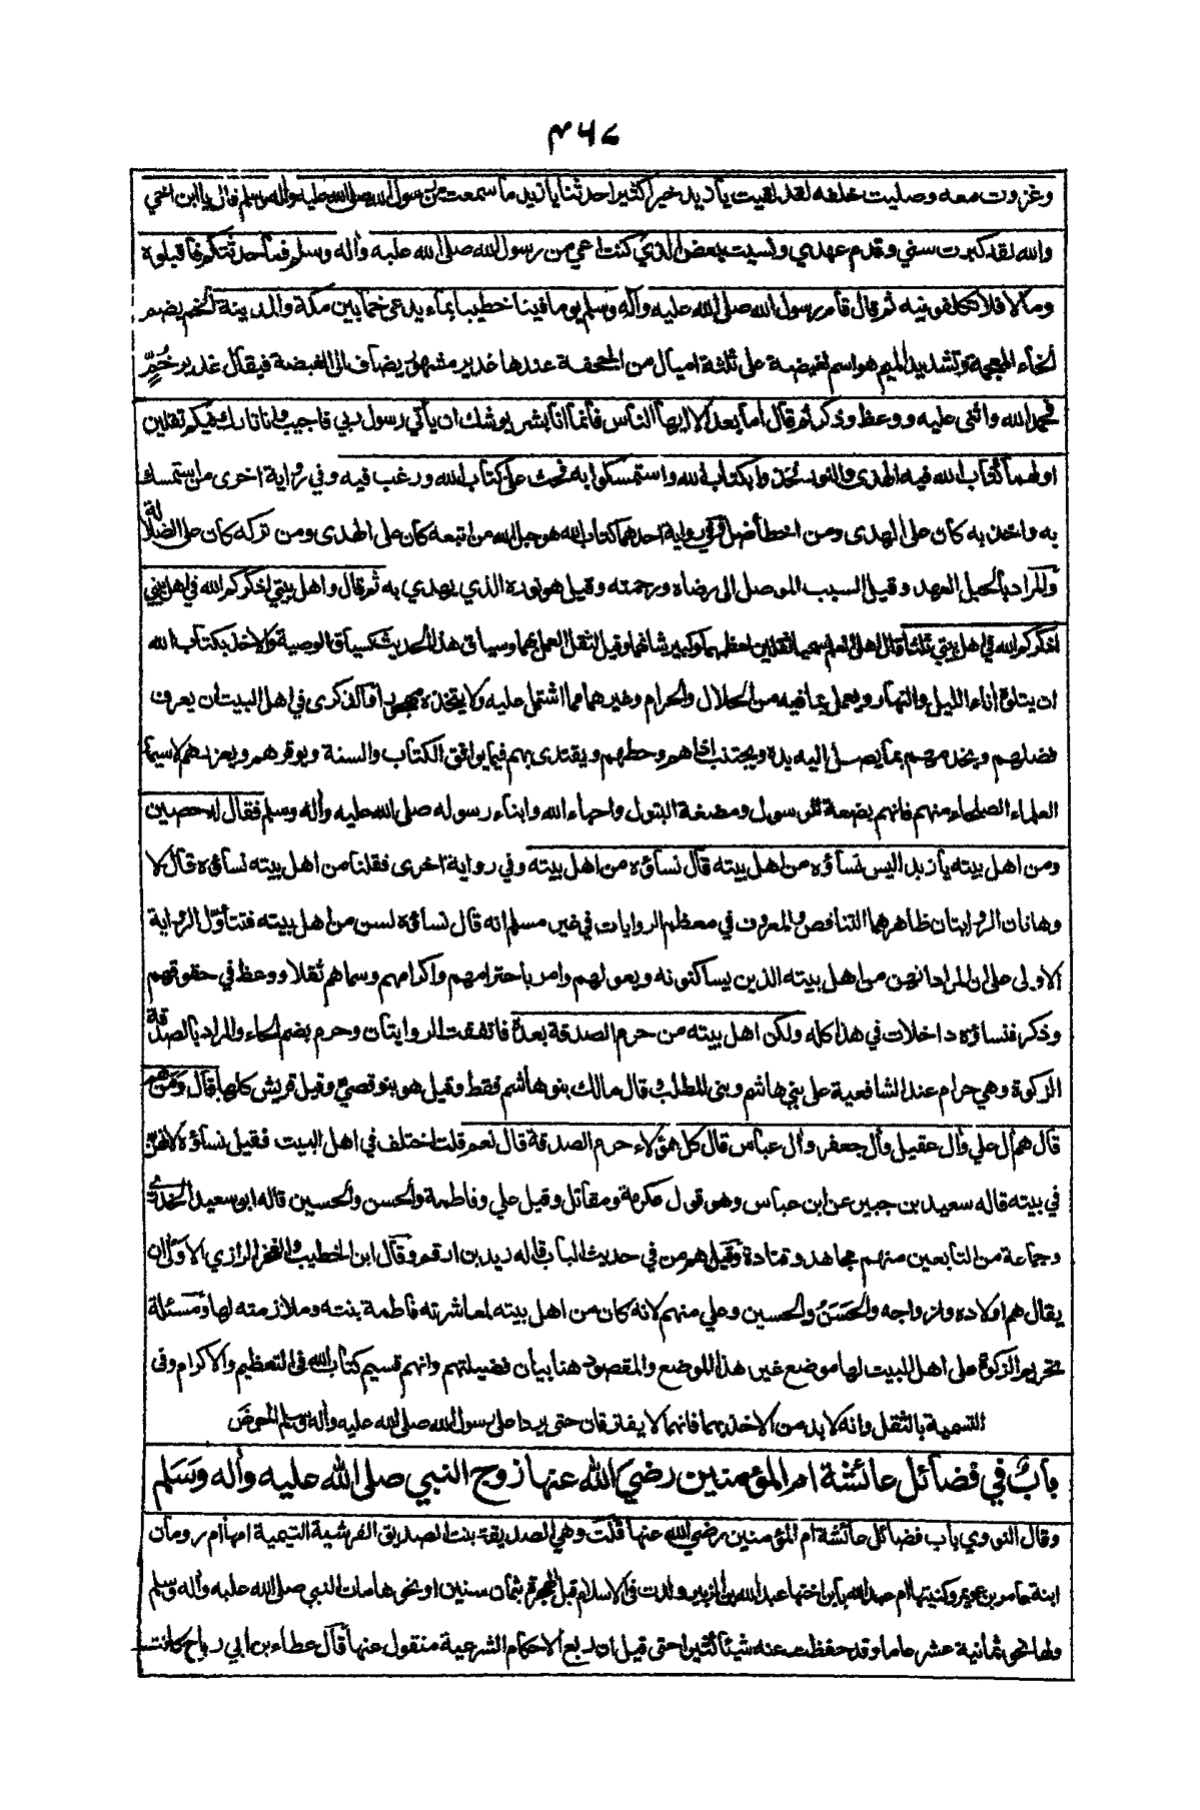 ٤٦٧
وغزوت معه وصليت خلفه لقد لقيت يا زيد خيرا كثيرا حدثنا يا زيد ما سمعت من رسول الله صلى الله عليه وآله وسلم قال يا ابن اخي
والله لقد كبرت سني وقدم عهدي ونسيت بعض الذي كنت اعي من رسول الله صلى الله عليه وآله وسلم فما حدثتكم فاقبلوه
وما لا فلا تكلفونيه ثم قال قام رسول الله صلى الله عليه وآله وسلم يوما فينا خطيبا بماء يدعى خما بين مكة والمدينة الخم بضم
الخاء المعجمة وتشديد الميم هو اسم لغيضة على ثلثة اميال من الجحفة عندها غدير مشهور يضاف الى الغيضة فيقال غدير خُمٍّ
فحمد الله واثنى عليه ووعظ وذكر ثم قال اما بعد الا ايها الناس فانما انا بشر يوشك ان يأتي رسول ربي فاجيب وانا تارك فيكم ثقلين
اولهما كتاب الله فيه الهدى والنور فخذوا بكتاب الله واستمسكوا به فحث على كتاب الله ورغب فيه وفي رواية اخرى من استمسك
به واخذ به كان على الهدى ومن اخطأ ضل وفي رواية احدهما كتاب الله هو حبل الله من اتبعه كان على الهدى ومن تركه كان على الضلالة
والمراد بالحبل العهد وقيل السبب الموصل الى رضاه ورحمته وقيل هو نوره الذي يهدي به ثم قال واهل بيتي اذكركم الله في اهل بيتي
اذكركم الله في اهل بيتي ثلثا قال اهل العلم سميا ثقلين لعظمهما وكبير شانهما وقيل لثقل العمل بهما وسياق هذا الحديث كسياق الوصية والاخذ بكتاب الله
ان يتلى اناء الليل والنهار ويعمل بما فيه من الحلال والحرام وغيرهما مما اشتمل عليه ولا يتخذه مهجورا والذكرى في اهل البيت ان يعرف
فضلهم ويخدمهم بما يصل اليه يده ويجتنب اذاهم وحطهم ويقتدى بهم فيما يوافق الكتاب والسنة ويوقرهم ويعزهم لاسيما
العلماء الصلحاء منهم فانهم بضعة الرسول ومضغة البتول واحماء الله وابناء رسوله صلى الله عليه وآله وسلم فقال له حصين
ومن اهل بيته يا زيد اليس نساؤه من اهل بيته قال نساؤه من اهل بيته وفي رواية اخرى فقلنا من اهل بيته نساؤه قال لا
وهاتان الروايتان ظاهرهما التناقض والمعروف في معظم الروايات في غير مسلم انه قال نساؤه لسن من اهل بيته فتتأول الرواية
الاولى على ان المراد انهن من اهل بيته الذين يساكنونه ويعولهم وامر باحترامهم واكرامهم وسماهم ثقلا ووعظ في حقوقهم
وذكر فنساؤه داخلات في هذا كله ولكن اهل بيته من حرم الصدقة بعده فاتفقت الروايتان وحرم بضم الحاء والمراد بالصدقة
الزكوة وهي حرام عند الشافعية على بني هاشم وبنى المطلب وقال مالك بنو هاشم فقط وقيل هو بنو قصي وقيل قريش كلها قال ومن هم
قال هم آل علي وآل عقيل وآل جعفر وآل عباس قال كل هؤلاء حرم الصدقة قال نعم قلت اختلف في اهل البيت فقيل نساؤه لانهن
في بيته قاله سعيد بن جبير عن ابن عباس وهو قول عكرمة ومقاتل وقيل علي وفاطمة والحسن والحسين قاله ابو سعيد الخدري
وجماعة من التابعين منهم مجاهد وقتادة وقيل هم من في حديث الباب قاله زيد بن ارقم وقال ابن الخطيب والفخر الرازي الاولى ان
يقال هم اولاده وازواجه والحَسَنُ والحسين وعلي منهم لانه كان من اهل بيته لمعاشرته فاطمة بنته وملازمته لها ومسئلة
تحريم الزكوة على اهل البيت لها موضع غير هذا الموضع والمقصود هنا بيان فضيلتهم وانهم قسيم كتاب الله في التعظيم والاكرام وفي
التسمية بالثقل وانه لا بد من الاخذ بهما فانهما لا يفترقان حتى يردا على رسول الله صلى الله عليه وآله وسلم الحوض
بابٌ في فضائل عائشة ام المؤمنين رضي الله عنها زوج النبي صلى الله عليه وآله وَسَلم
وقال النووي باب فضائل عائشة ام المؤمنين رضي الله عنها قلت وهي الصديقة بنت الصديق القرشية التيمية امها ام رومان
ابنة عامر بن عويمر وكنيتها ام عبد الله بابن اختها عبد الله بن الزبير ولدت في الاسلام قبل الهجرة بثمان سنين او نحوها مات النبي صلى الله عليه وآله وسلم
ولها نحو ثمانية عشر عاما وقد حفظت عنه شيئا كثيرا حتى قيل ان ربع الاحكام الشرعية منقول عنها قال عطاء بن ابي رباح كانت